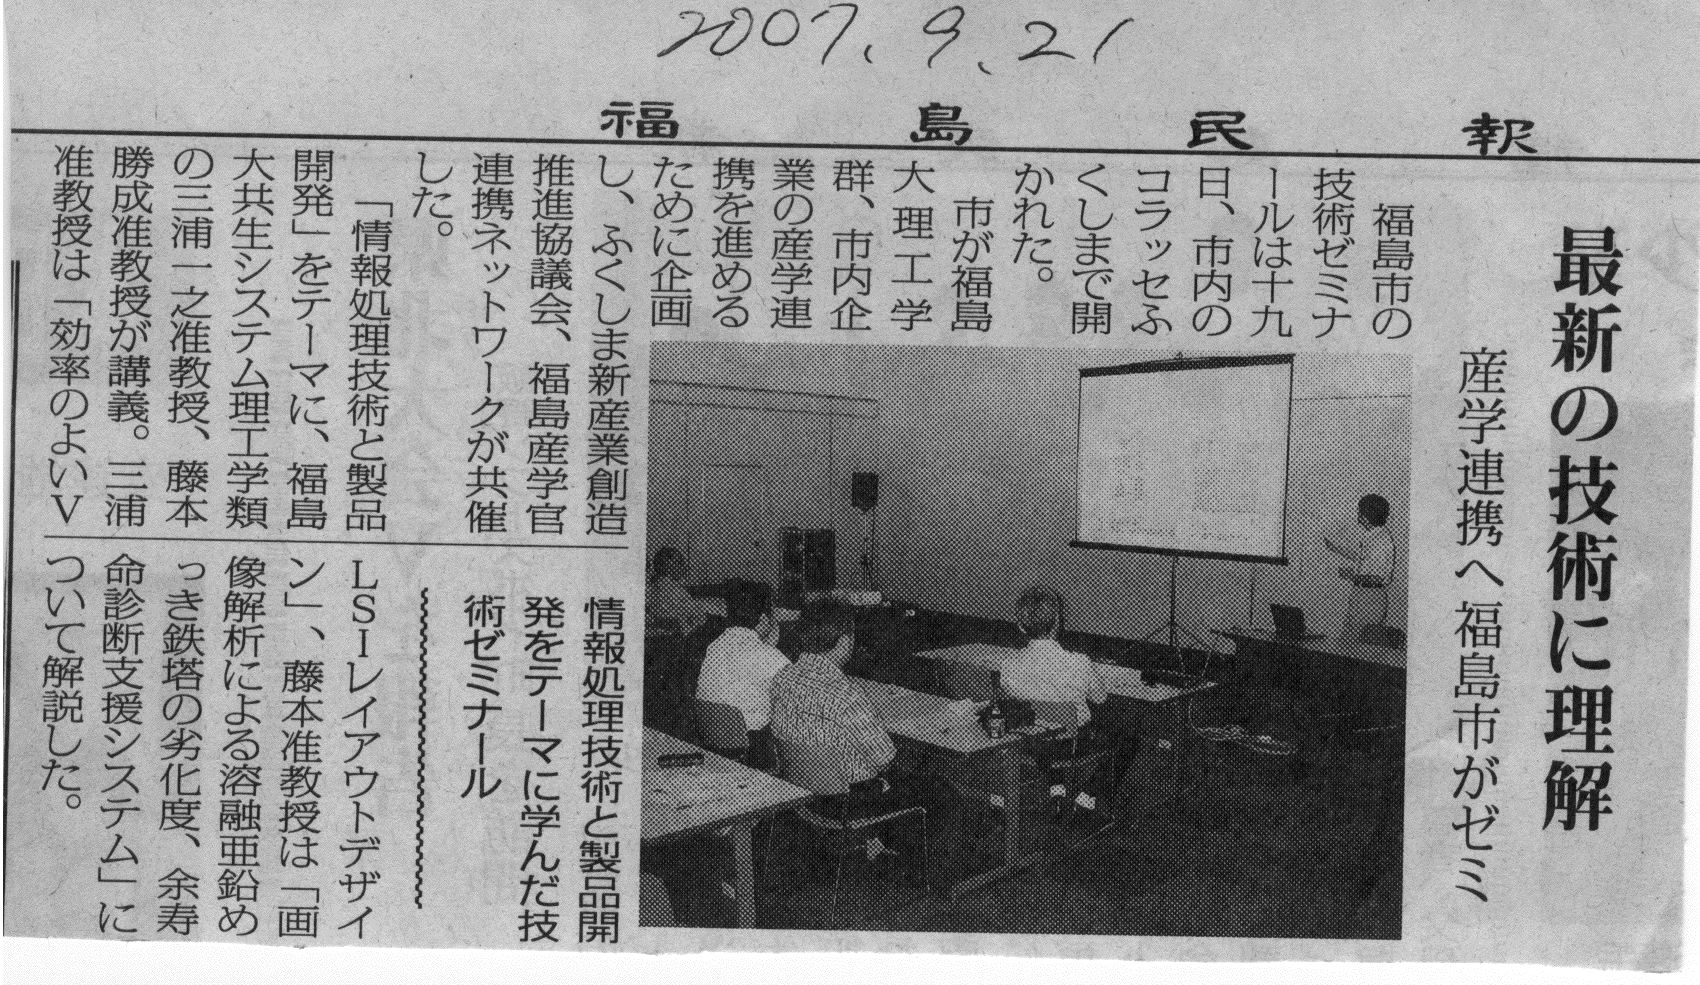 2007.9.21
福島民報
最新の技術に理解
産学連携へ福島市がゼミ
福島市の
技術ゼミナ
ールは十九
日、市内の
コラッセふ
くしまで開
かれた。
市が福島
大理工学
群、市内企
業の産学連
携を進める
ために企画
し、ふくしま新産業創造
推進協議会、福島産学官
連携ネットワークが共催
した。
「情報処理技術と製品
開発」をテーマに、福島
大共生システム理工学類
の三浦一之准教授、藤本
勝成准教授が講義。三浦
准教授は「効率のよいV
LSIレイアウトデザイ
ン」、藤本准教授は「画
像解析による溶融亜鉛め
っき鉄塔の劣化度、余寿
命診断支援システム」に
ついて解説した。
情報処理技術と製品開
発をテーマに学んだ技
術ゼミナール